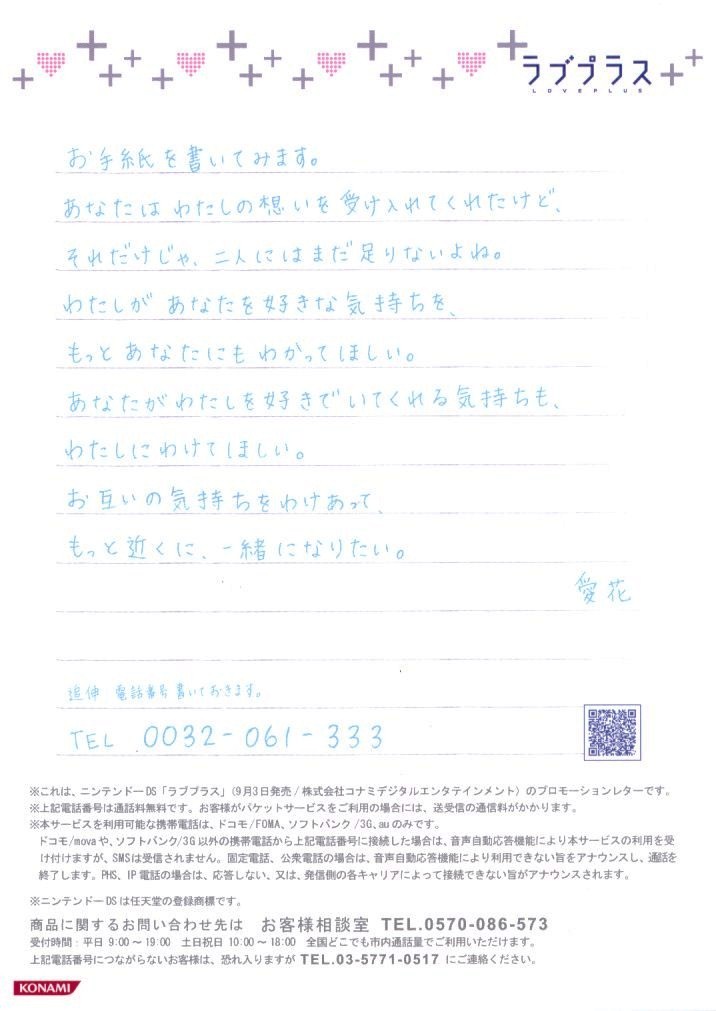 ラブプラス
LOVEPLUS
お手紙を書いてみます。
あなたは わたしの想いを受け入れてくれたけど、
それだけじゃ、二人にはまだ足りないよね。
わたしが あなたを好きな気持ちを、
もっと あなたにも わかってほしい。
あなたがわたしを好きでいてくれる気持ちも、
わたしに わけてほしい。
お互いの気持ちをわけあって、
もっと近くに、一緒になりたい。
愛花
追伸 電話番号書いておきます。
TEL 0032-061-333
※これは、ニンテンドーDS「ラブプラス」(9月3日発売/株式会社コナミデジタルエンタテインメント)のプロモーションレターです。
※上記電話番号は通話料無料です。お客様がパケットサービスをご利用の場合には、送受信の通信料がかかります。
※本サービスを利用可能な携帯電話は、ドコモ/FOMA、ソフトバンク/3G、auのみです。
ドコモ/movaや、ソフトバンク/3G以外の携帯電話から上記電話番号に接続した場合は、音声自動応答機能により本サービスの利用を受
け付けますが、SMSは受信されません。固定電話、公衆電話の場合は、音声自動応答機能により利用できない旨をアナウンスし、通話を
終了します。PHS、IP電話の場合は、応答しない、又は、発信側の各キャリアによって接続できない旨がアナウンスされます。
※ニンテンドーDSは任天堂の登録商標です。
商品に関するお問い合わせ先は お客様相談室 TEL.0570-086-573
受付時間:平日 9:00~19:00 土日祝日 10:00~18:00 全国どこでも市内通話量でご利用いただけます。
上記電話番号につながらないお客様は、恐れ入りますが TEL.03-5771-0517 にご連絡ください。
KONAMI